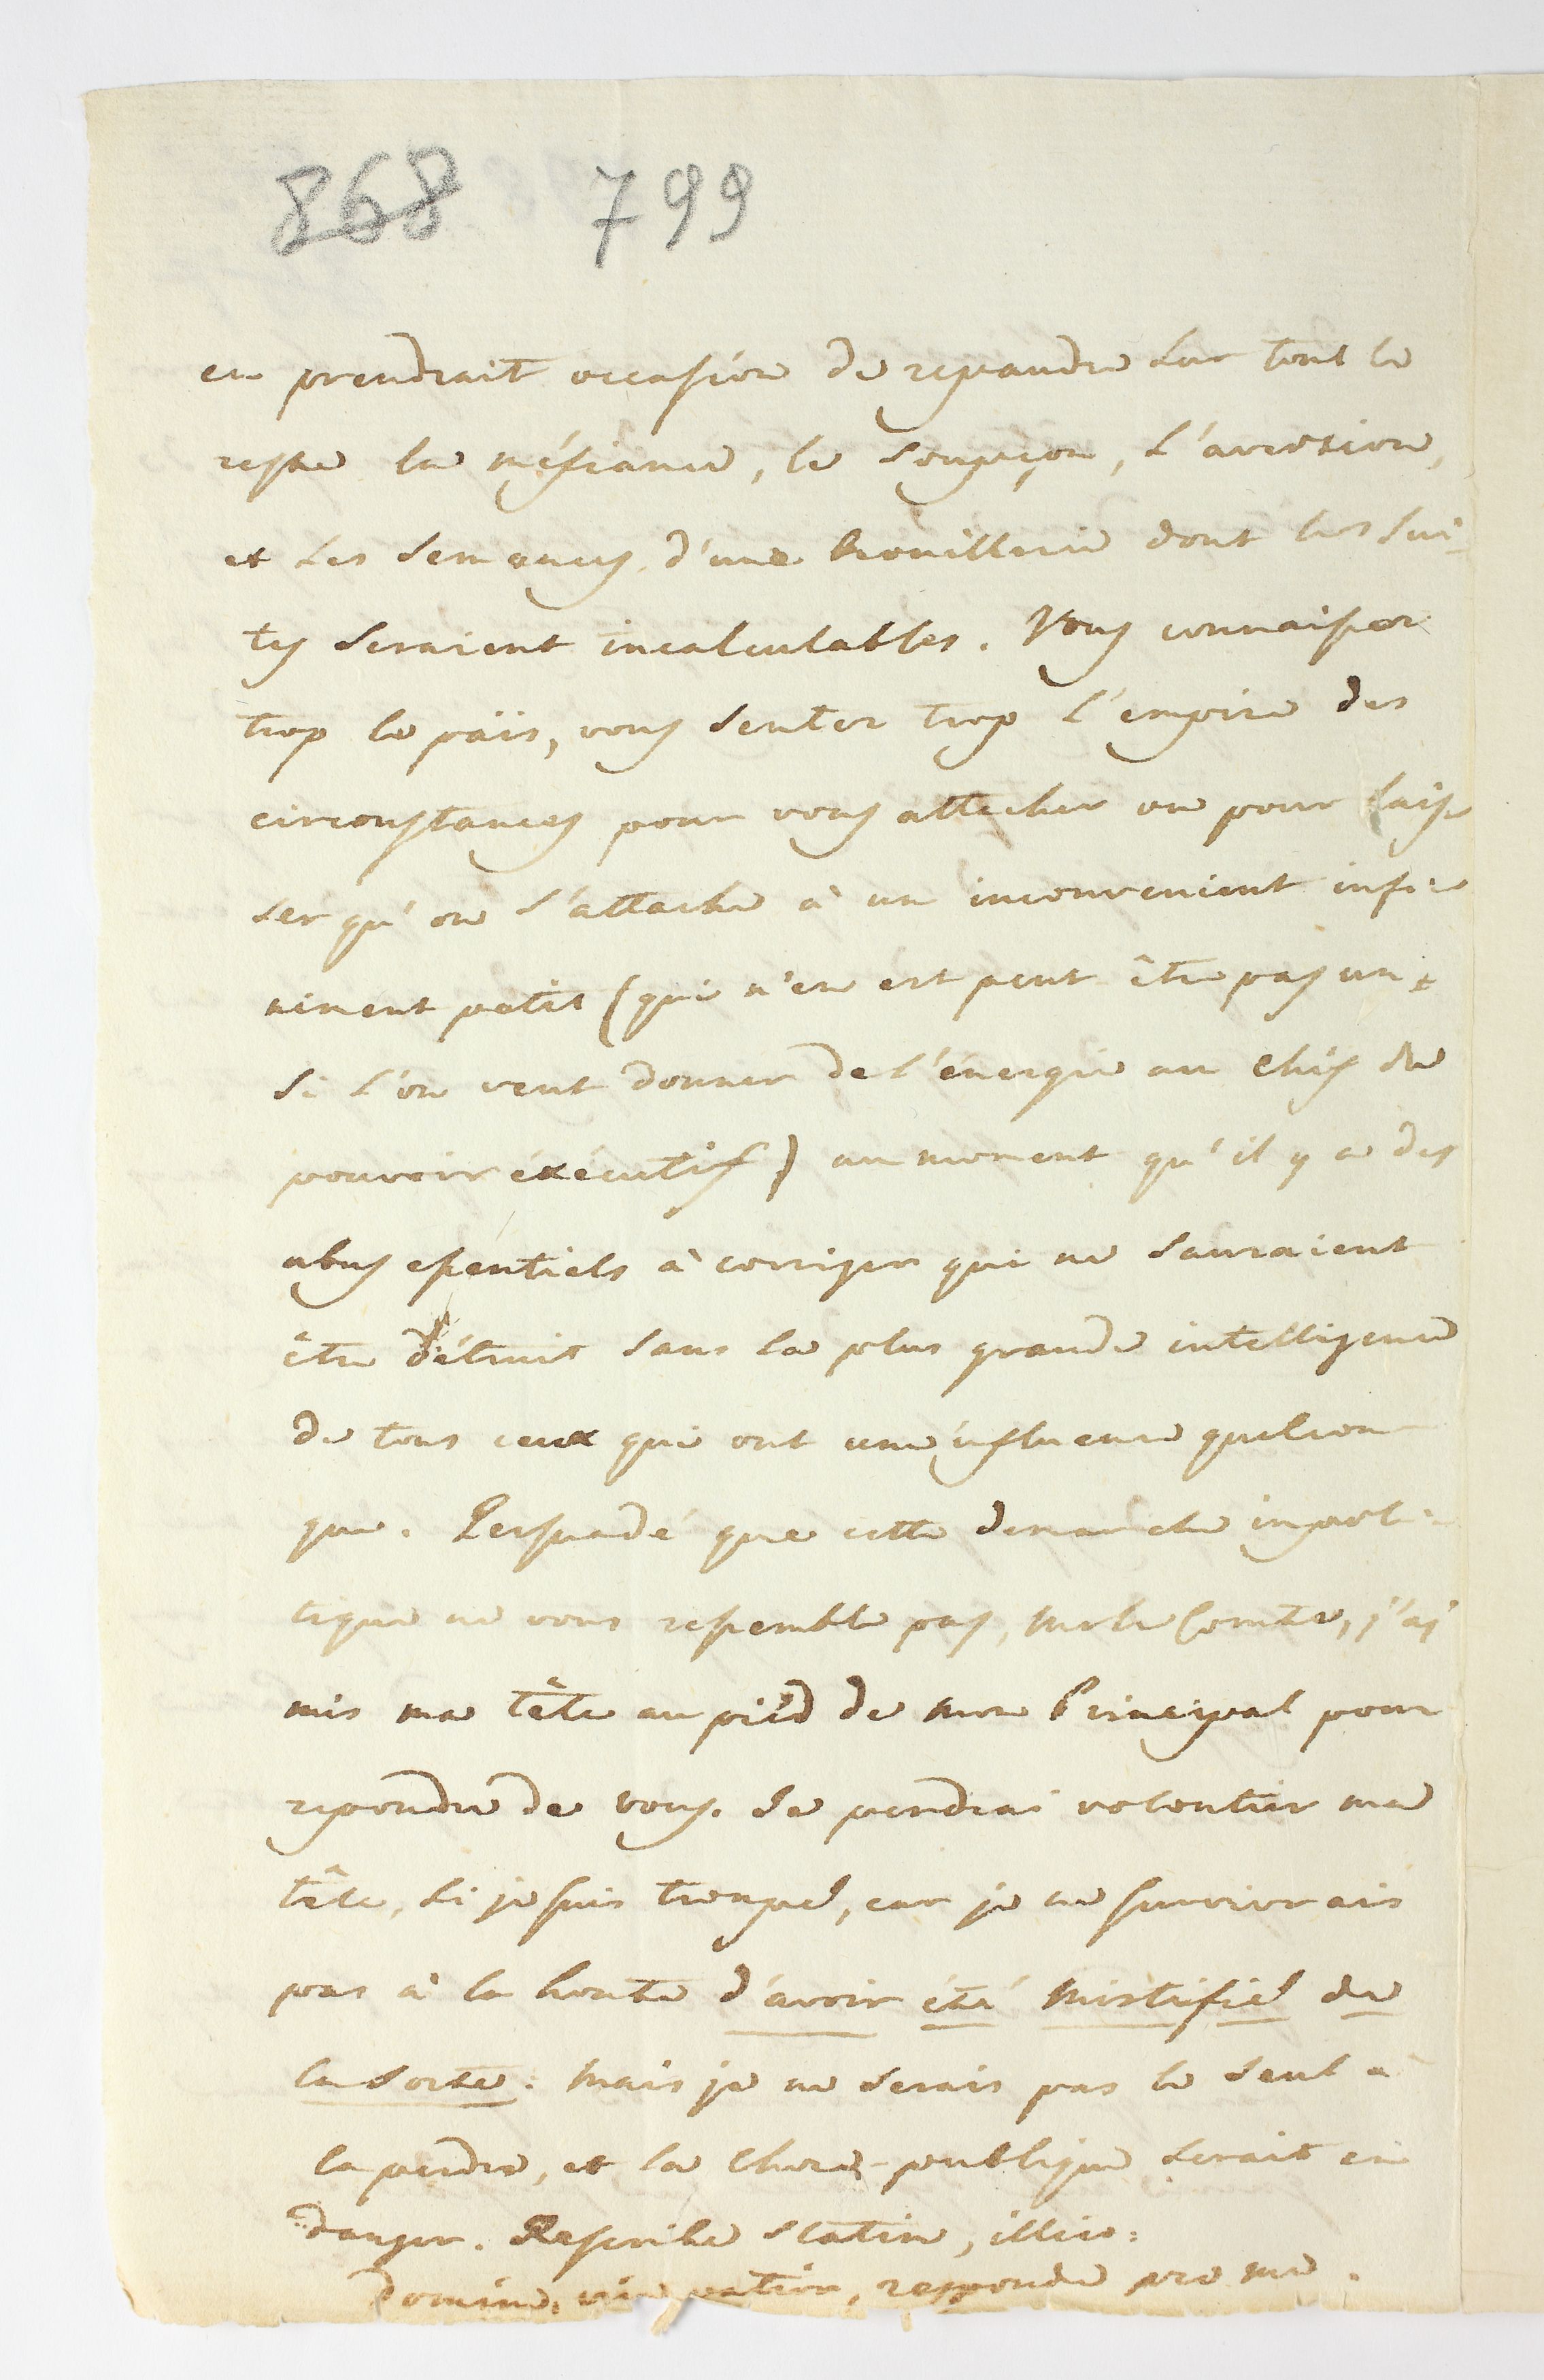 868 799
en prendrait occasion de repandre sur tout le
reste la méfiance, le soupçon, l'aversion,
et les semences d'une brouillerie dont les sui-
tes seraient incalculables. Vous connaissez
trop le païs, vous sentez trop l'empire des
circonstances pour vous attacher ou pour lais-
ser qu'on s'attache à un inconvenient infi-
niment petit (qui n'en est peut être pas un,
si l'on veut donner de l'énergie au Chef du
pouvoir éxécutif) au moment qu'il y a des
abus essentiels à corriger qui ne sauraient
être détruit sans la plus grande intelligence
de tous ceux qui ont une influence quelcon-
que. Persuadé que cette demarche impoli-
tique ne vous ressemble pas, Mr le Comte, j'ai
mis ma tête au piéd de mon Principal pour
repondre de vous. Je perdrai volontier ma
tête, si je suis trompé, car je ne survivrais
pas à la honte d'avoir été mistifié de
la sorte: mais je ne serais pas le seul à
la perdre, et la chose-publique serait en
danger. Rescribe statim, illico:
Domine, vim patior, responde pro me.